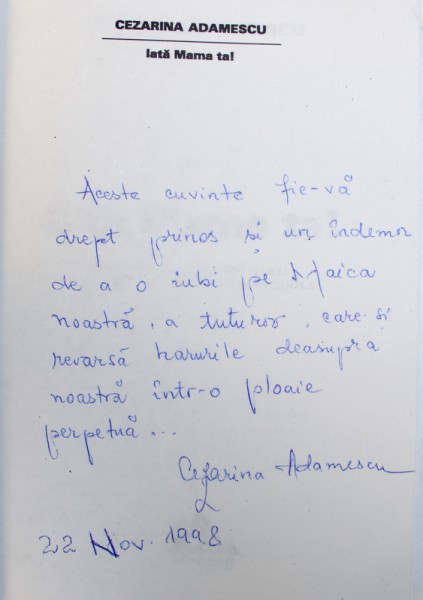 CEZARINA ADAMESCU
Iată Mama ta!
Aceste cuvinte fie-vă
drept prinos și un îndemn
de a o iubi pe Maica
noastră, a tuturor, care-și
revarsă harurile deasupra
noastră într-o ploaie
perpetuă...
Cezarina Adamescu
22 Nov. 1998